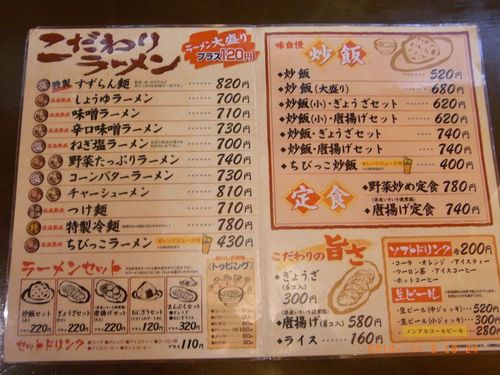 こだわり
ラーメン
ラーメン大盛り
プラス120円
特製 すずらん麺 …… 820円
しょうゆラーメン …… 700円
味噌ラーメン …… 710円
辛口味噌ラーメン …… 730円
ねぎ塩ラーメン …… 700円
野菜たっぷりラーメン …… 740円
コーンバターラーメン …… 730円
チャーシューメン …… 810円
つけ麺 …… 710円
特製冷麺 780円
ちびっこラーメン オレンジジュース付 430円
ラーメンセット
トッピング
炒飯セット
プラス220円
ぎょうざセット
プラス220円
唐揚げセット
プラス220円
おにぎりセット
プラス120円
まんぷくセット
プラス320円
セットドリンク
プラス110円
味自慢
炒飯
炒飯 …… 520円
炒飯(大盛り) …… 680円
炒飯(小)・ぎょうざセット …… 620円
炒飯(小)・唐揚げセット …… 620円
炒飯・ぎょうざセット …… 740円
炒飯・唐揚げセット …… 740円
ちびっこ炒飯 オレンジジュース付 …… 400円
定食
野菜炒め定食 780円
唐揚げ定食 740円
こだわりの旨さ
ぎょうざ
(6コ入)
300円
唐揚げ(8コ入) 580円
ライス …… 160円
ソフトドリンク 各200円
・コーラ ・オレンジ ・アイスティー
・ウーロン茶 ・アイスコーヒー
・ホットコーヒー
生ビール
・生ビール(中ジョッキ)
・生ビール(小ジョッキ) 300円
ノンアルコールビール …… 280円